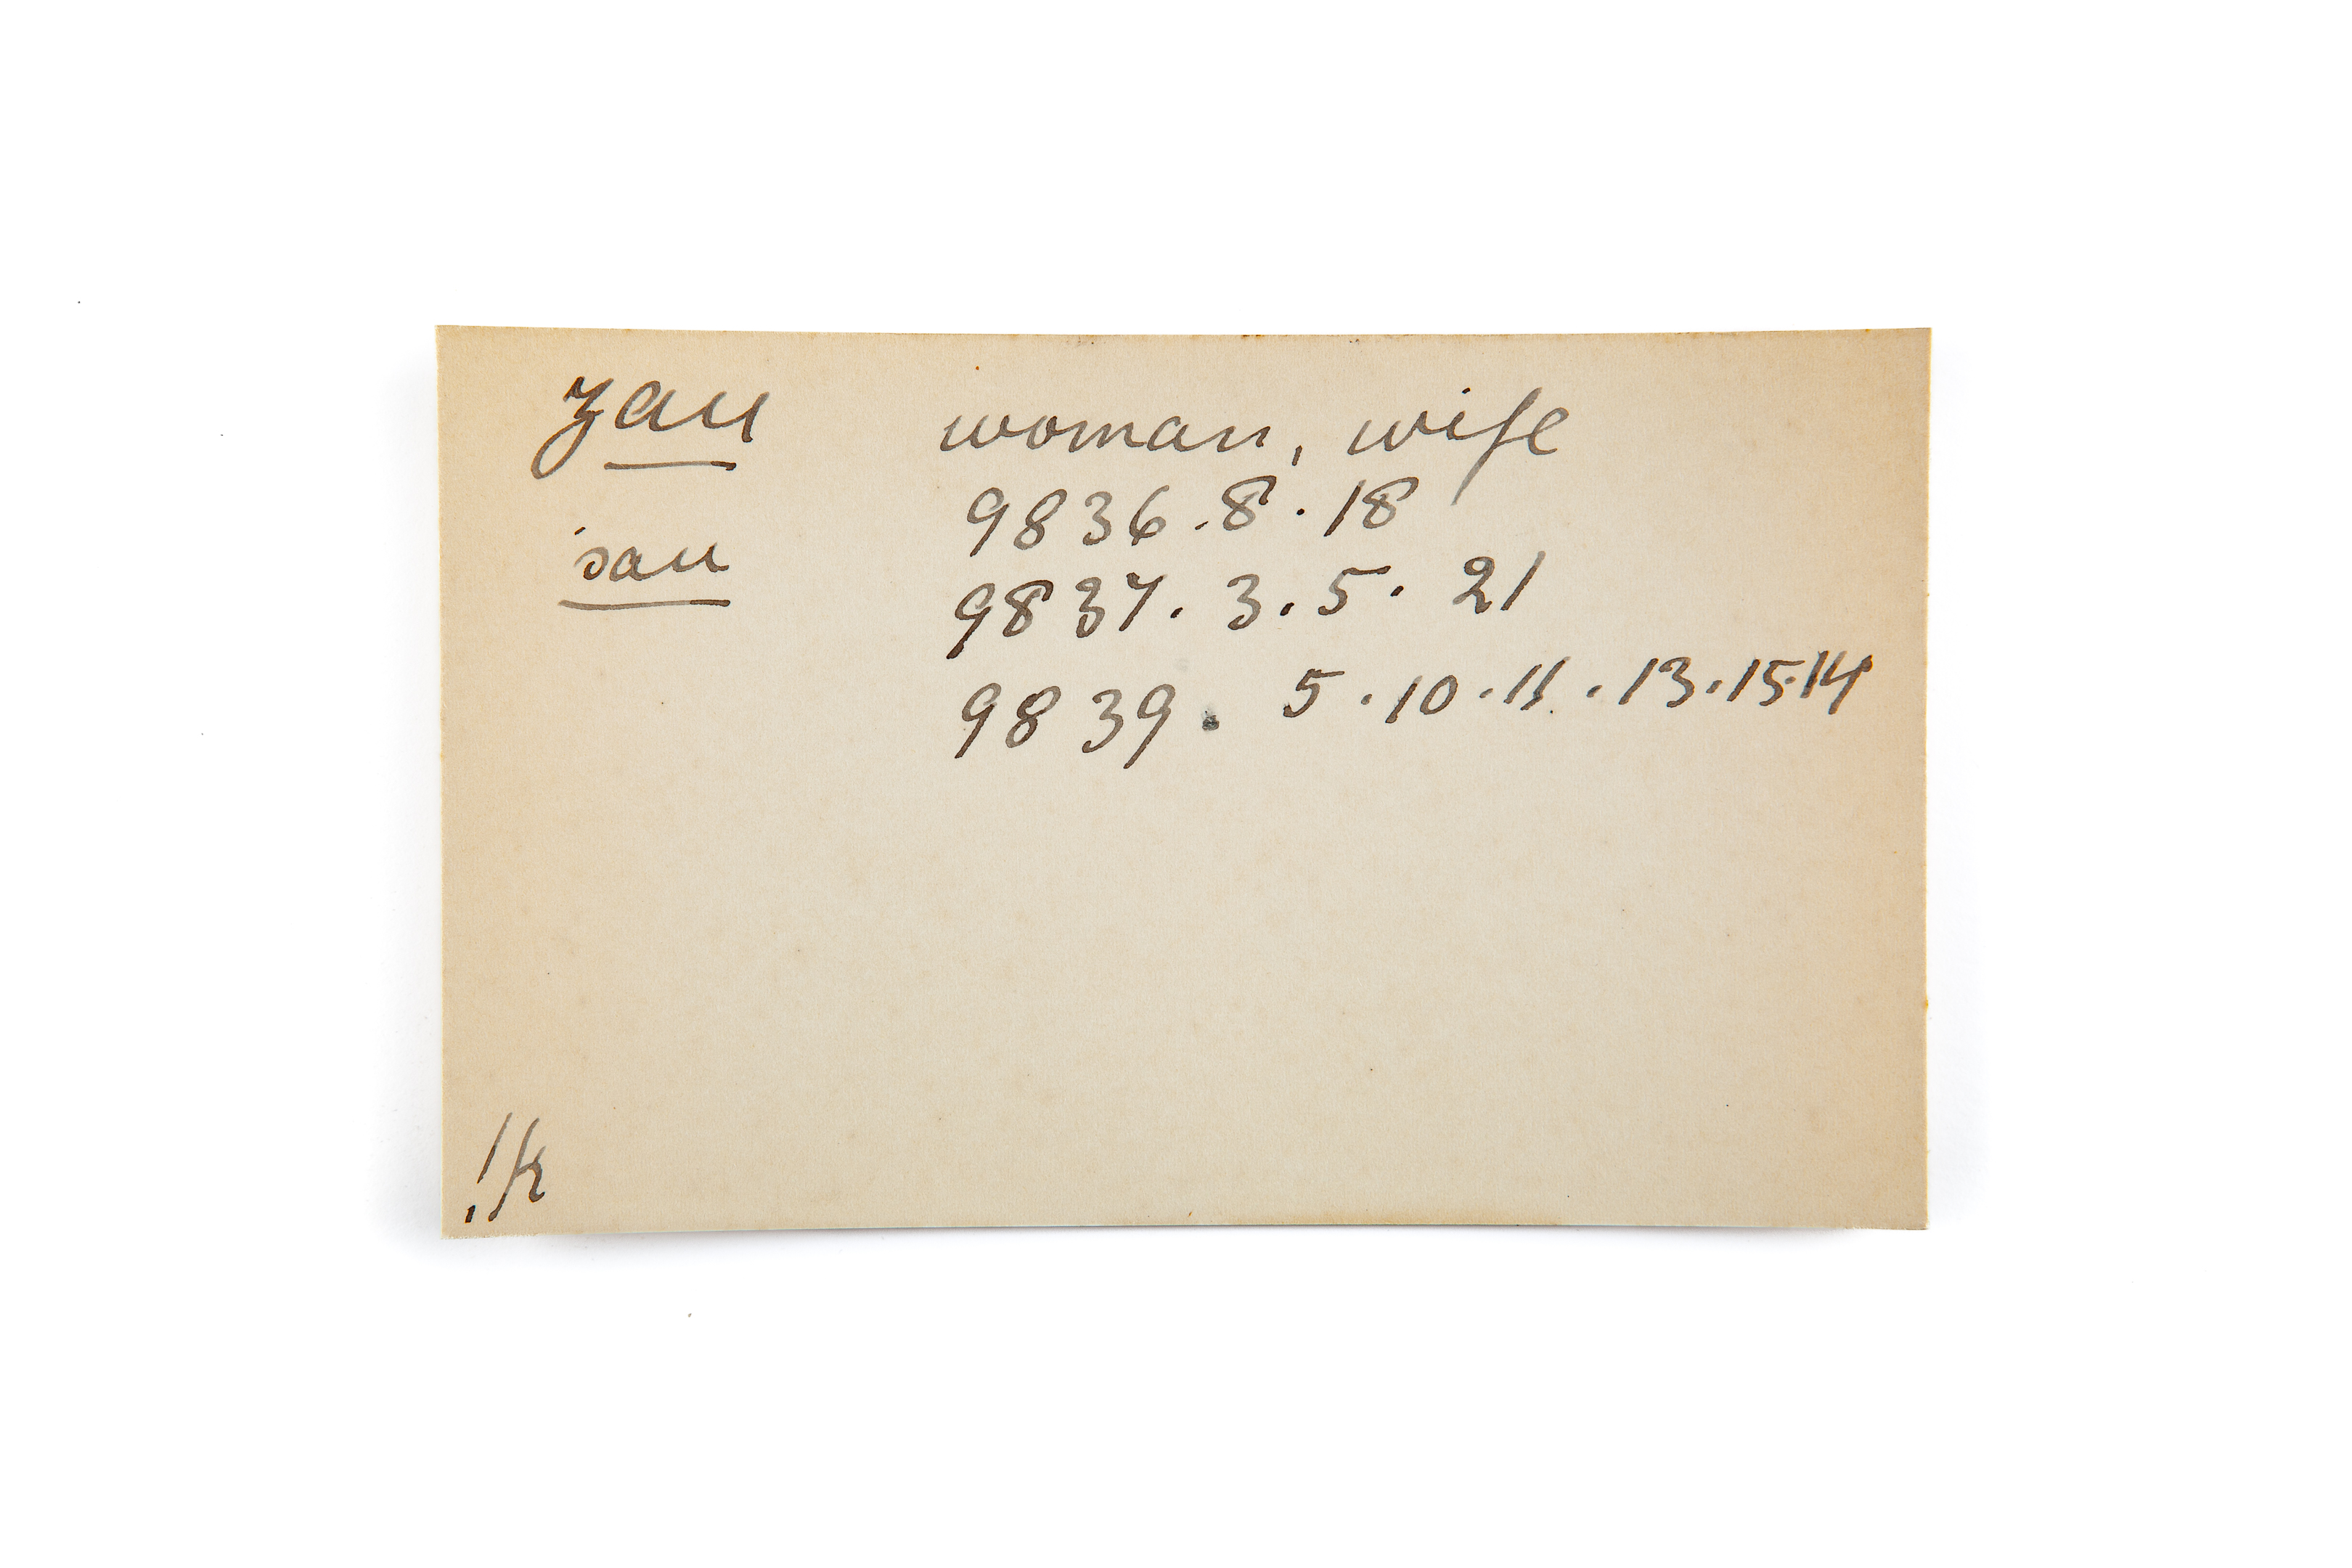 zau woman, wife
9836.8.18
sau
9837.3.5.21
9839.5.10.11.13.15.14
!k